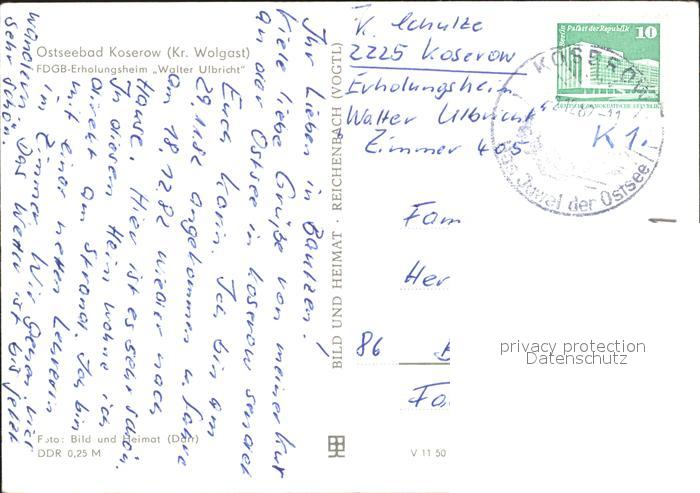 Ostseebad Koserow (Kr. Wolgast)
FDGB-Erholungsheim „Walter Ulbricht"
Ihr Lieben in Bautzen!
Viele liebe Grüße von meiner Kur
an der Ostsee in Koserow sendet
Euch Karin. Ich bin am
29.11.82 angekommen u. fahre
am 18.12.82 wieder nach
Hause. Hier ist es sehr schön.
In diesen Heim wohne ich
direkt am Strand. Ich bin
mit einer netten Lehrerin
im Zimmer. Wir gehen vier
wandern
sehr schön. Das Wetter ist bis jetzt
Foto: Bild und Heimat (Darr)
DDR 0,25 M
BILD UND HEIMAT · REICHENBACH (VOGTL)
V 11 50
K. Schulze
2225 Koserow
Erholungsheim
Walter Ulbricht
Zimmer 405
Palast der Republik
10
DEUTSCHE DEMOKRATISCHE REPUBLIK
KOSEROW
das Juwel der Ostsee
K 1.-
Fam
Her
86
Fa
privacy protection
Datenschutz